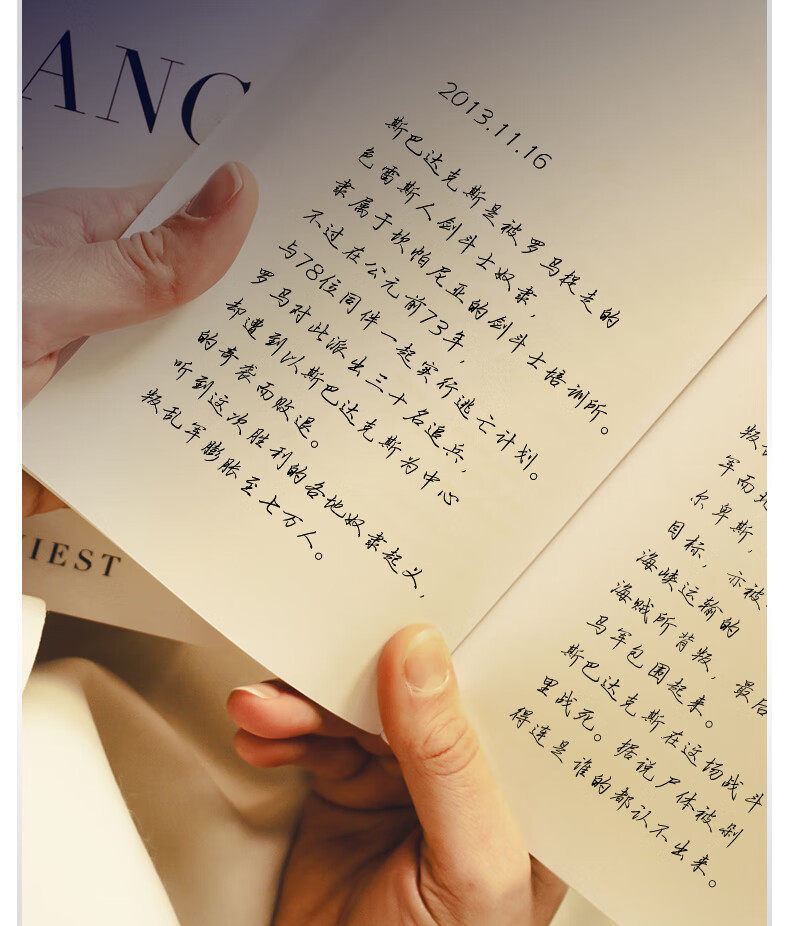 ANC
IEST
2013.11.16
斯巴达克斯是被罗马捉走的
色雷斯人剑斗士奴隶,
隶属于坎帕尼亚的剑斗士培训所。
不过在公元前73年,
与78位同伴一起实行逃亡计划。
罗马对此派出三十名追兵,
却遭到以斯巴达克斯为中心
的奇袭而败退。
听到这次胜利的各地奴隶起义,
叛乱军膨胀至七万人。
叛
军而
尔卑斯,
目标, 亦被
海峡运输的
海贼所背叛, 最后
马军包围起来。
斯巴达克斯在这场战斗
里战死。据说尸体被剁
得连是谁的都认不出来。